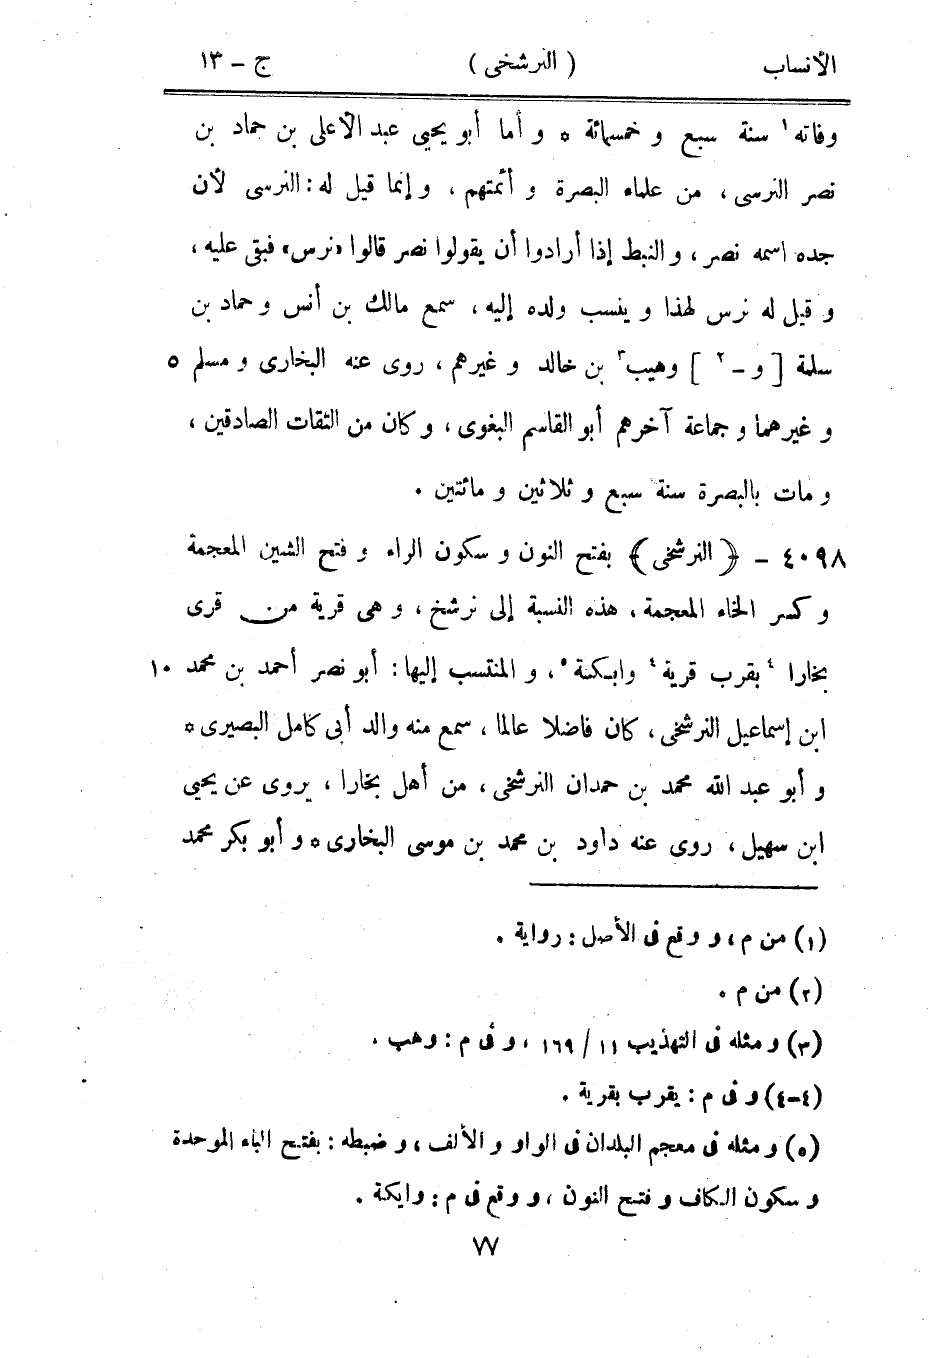 الأنساب ( النرشخى ) ج – ١٣
وفاته ١ سنة سبع و خمسمائة * و أما أبو يحيى عبد الأعلى بن حماد بن
نصر النرسى ، من علماء البصرة و أئمتهم ، و إنما قيل له : النرسى لأن
جده اسمه نصر ، و النبط إذا أرادوا أن يقولوا نصر قالوا «نرس» فبقى عليه ،
و قيل له نرس لهذا و ينسب ولده إليه ، سمع مالك بن أنس و حماد بن
سلمة [ و – ٢ ] وهيب ٣ بن خالد و غيرهم ، روى عنه البخارى و مسلم ٥
و غيرهما و جماعة آخرهم أبو القاسم البغوى ، و كان من الثقات الصادقين ،
و مات بالبصرة سنة سبع و ثلاثين و مائتين .
٤٠٩٨ – ﴿ النرشخى ﴾ بفتح النون و سكون الراء و فتح الشين المعجمة
و كسر الخاء المعجمة ، هذه النسبة إلى نرشخ ، و هى قرية من قرى
بخارا ٤ بقرب قرية ٤ وابكنة ٥ ، و المنتسب إليها : أبو نصر أحمد بن محمد ١٠
ابن إسماعيل النرشخى ، كان فاضلا عالما ، سمع منه والد أبى كامل البصيرى *
و أبو عبد الله محمد بن حمدان النرشخى ، من أهل بخارا ، يروى عن يحيى
ابن سهيل ، روى عنه داود بن محمد بن موسى البخارى * و أبو بكر محمد
(١) من م ، و وقع فى الأصل : رواية .
(٢) من م .
(٣) و مثله فى التهذيب ١١ / ١٦٩ ، و فى م : وهب .
(٤-٤) و فى م : يقرب بقرية .
(٥) و مثله فى معجم البلدان فى الواو و الألف ، و ضبطه : بفتح الباء الموحدة
و سكون الكاف و فتح النون ، و وقع فى م : وايكة .
٧٧